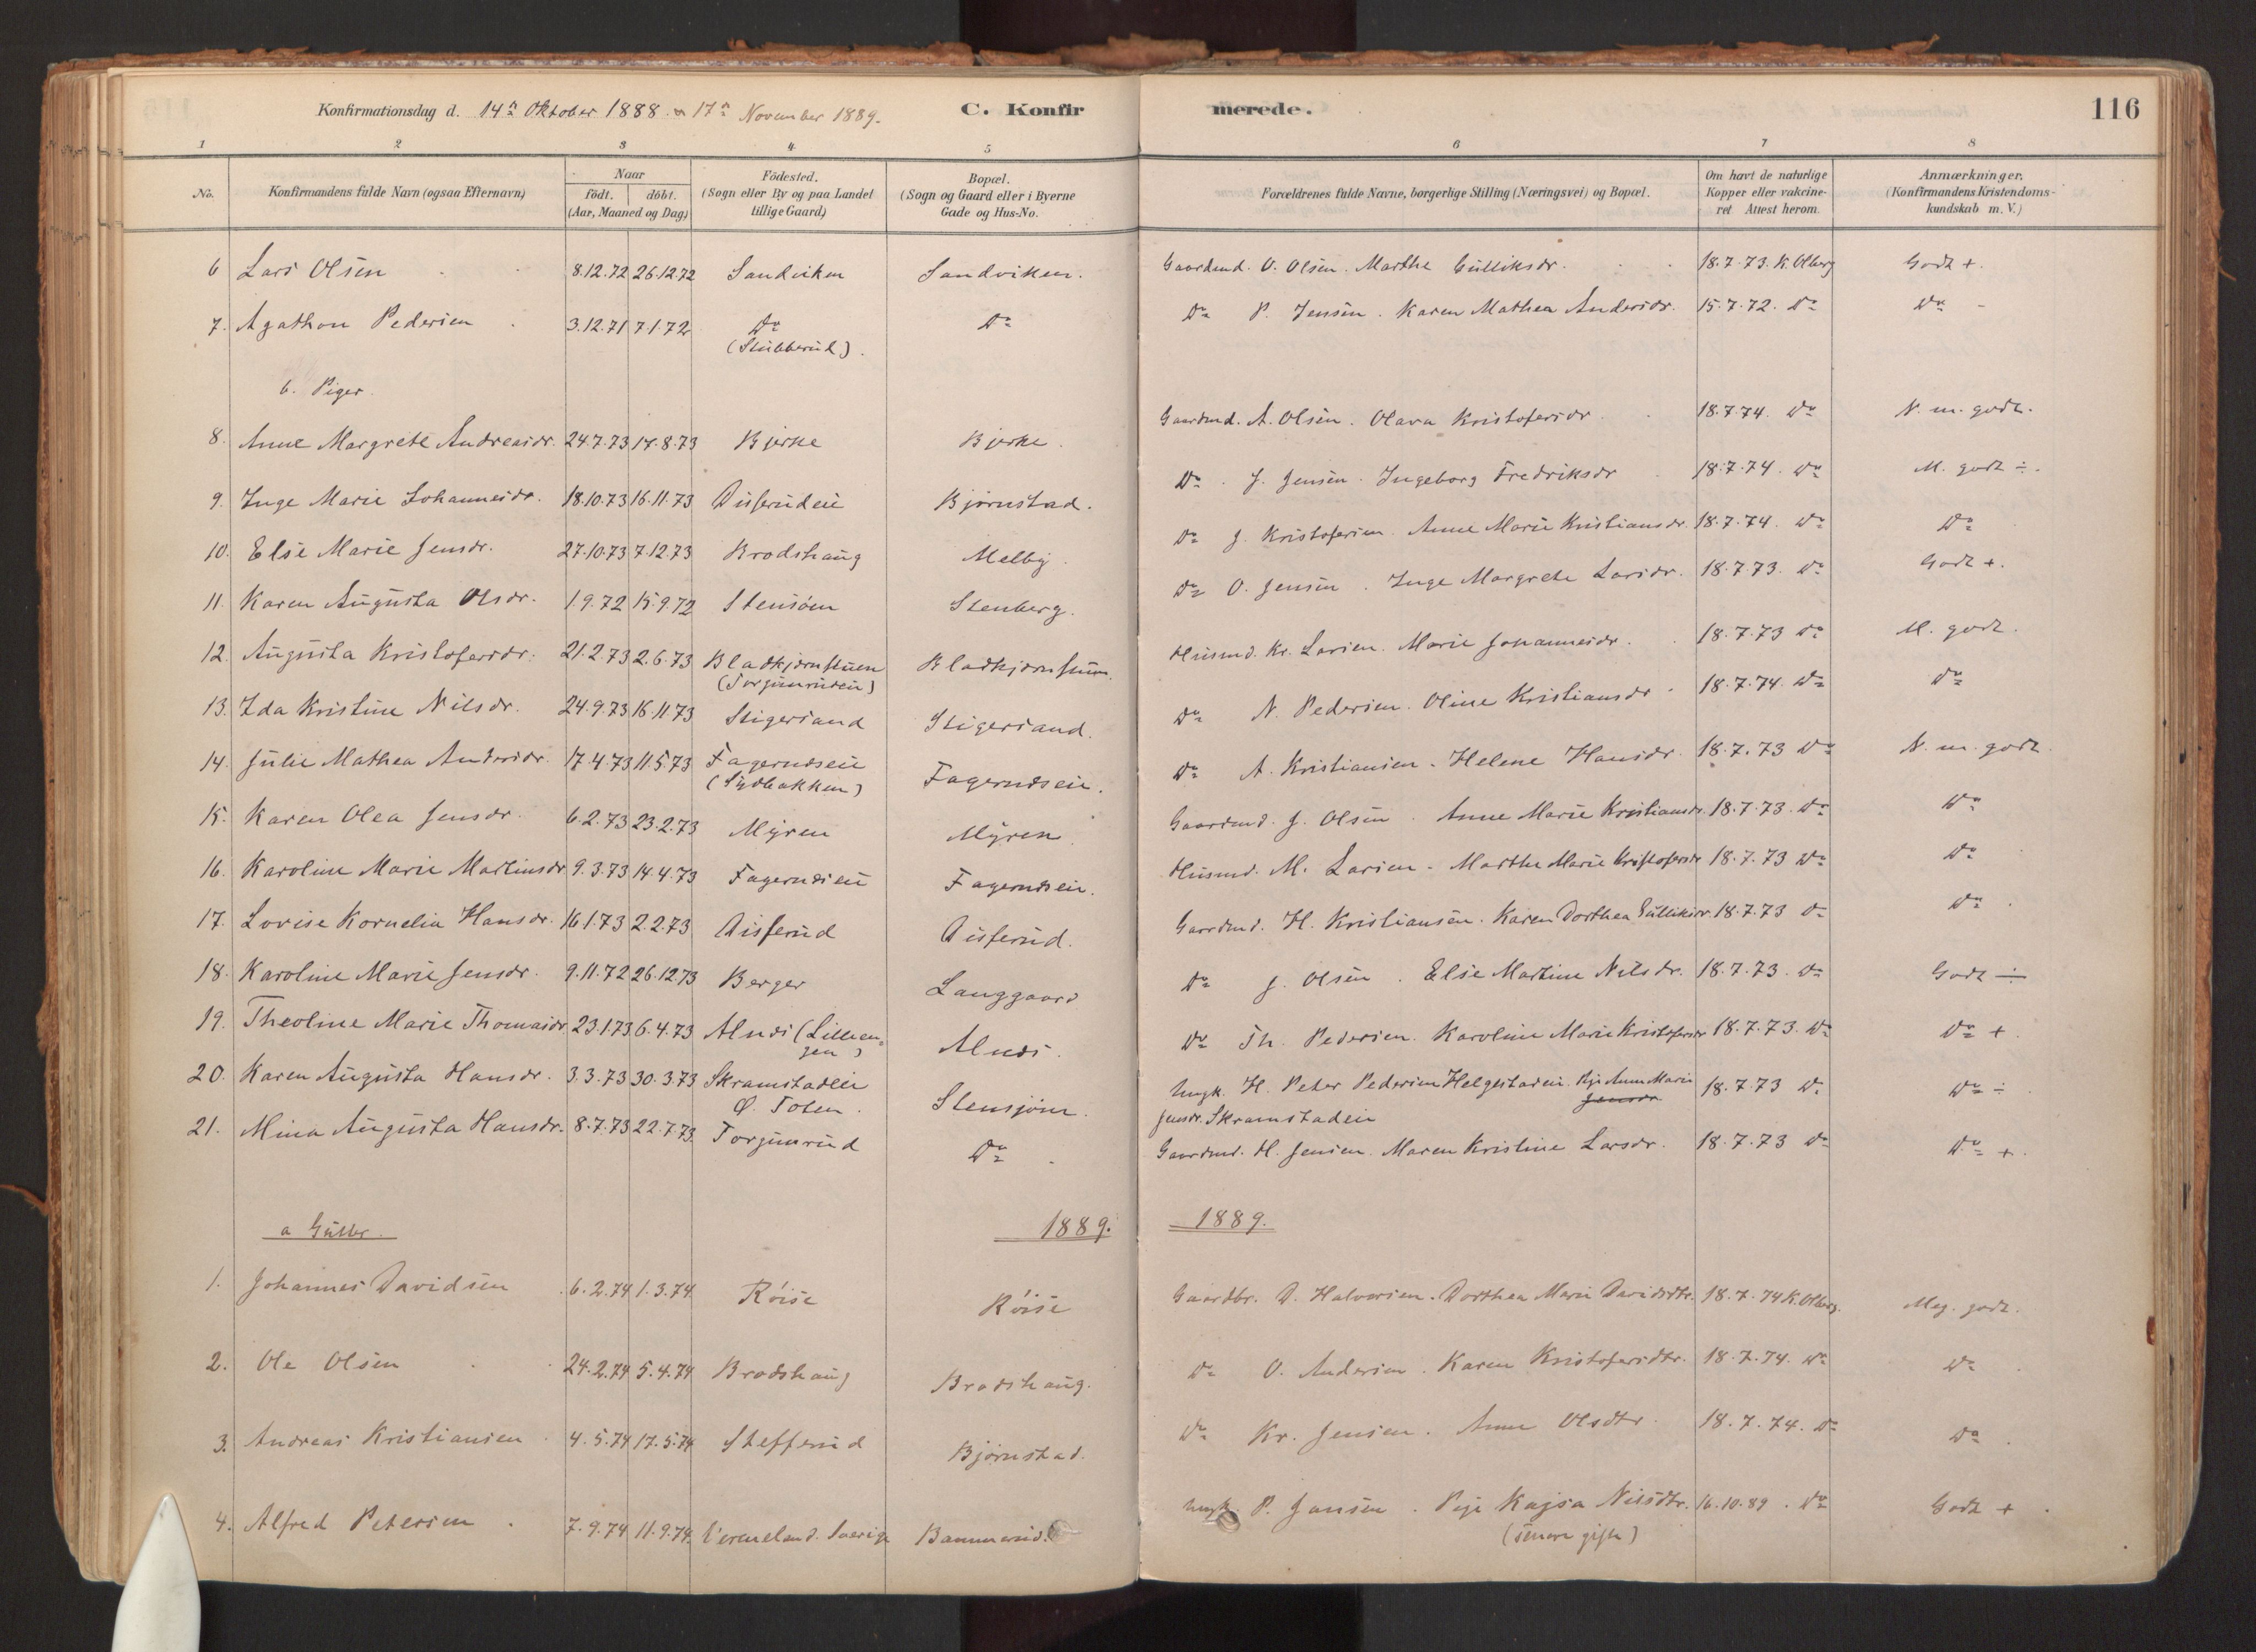 Konfirmationsdag d. 14de Oktober 1888 og 17de November 1889. C. Konfir merede. 116
1 2 3 4 5 6 7 8
No. Konfirmandens fulde Navn (ogsaa Efternavn) Naar födt. döbt. (Aar, Maaned og Dag) Födested. (Sogn eller By og paa Landet tillige Gaard) Bopæl. (Sogn og Gaard eller i Byerne Gade og Hus-No. Forældrenes fulde Navne, borgerlige Stilling (Næringsvei) og Bopæl. Om havt de naturlige Kopper eller vakcineret Attest herom. Anmærkninger. (Konfirmandens Kristendomskundskab m. V.)
6 Lars Olsen 8.12.72 26.12.72 Sandviken Sandviken. Gaardmd. O. Olsen. Marthe Gulliksdr. 18.7.73. K. Olberg Godt +.
7. Agathon Pedersen 3.12.71 7.1.72 Do (Stubberud). Do Do P. Jensen. Karen Mathea Andersdr. 15.7.72. Do Do -
b. Piger.
8. Anne Margrete Andreasdr. 24.7.73 17.8.73 Bjerke Bjerke. Gaardmd. A. Olsen. Olava Kristofersdr 18.7.74. Do N. m. godt.
9. Inge Marie Johannesdr. 18.10.73 16.11.73 Disserudeie Bjørnstad. Do. J. Jensen. Ingeborg Fredriksdr 18.7.74. Do M. godt ÷.
10. Else Marie Jensdr. 27.10.73 7.12.73 Brodshaug Melby. Do J. Kristofersen. Anne Marie Kristiansdr. 18.7.74. Do Do
11. Karen Augusta Olsdr. 1.9.72 15.9.72 Stensöen Stenberg. Do O. Jensen. Inge Margrete Larsdr. 18.7.73. Do Godt +.
12. Augusta Kristofersdr. 21.2.73 2.6.73 Bladkjernstuen (Torjunrudeie) Bladkjernstuen. Husmd. Kr. Larsen. Marie Johannesdr. 18.7.73 Do M. godt.
13. Ida Kristine Nilsdr. 24.9.73 16.11.73 Stigersand Stigersand. Do N. Pedersen. Oline Kristiansdr 18.7.74. Do Do
14. Julie Mathea Andersdr. 17.4.73 11.5.73 Fagernæseie (Sydbakken) Fagernæseie. Do A. Kristiansen. Helene Hansdr. 18.7.73 Do N. m. godt.
15. Karen Olea Jensdr. 6.2.73 23.2.73 Myren Myren. Gaardmd. J. Olsen. Anne Marie Kristiansdr. 18.7.73. Do Do
16. Karoline Marie Martinsdr 9.3.73 14.4.73 Fagernæseie Fagernæseie. Husmd. M. Larsen. Marthe Marie Kristofersdr 18.7.73 Do Do
17. Lovise Kornelia Hansdr. 16.1.73 2.2.73 Disserud Disserud. Gaardmd. H. Kristiansen. Karen Dorthea Gulliksdr. 18.7.73 Do Do.
18. Karoline Marie Jensdr. 9.11.72 26.12.73 Berger Langgaard Do J. Olsen. Else Martine Nilsdr. 18.7.73. Do Godt ÷
19. Theoline Marie Thomasdr 23.1.73 6.4.73 Alnæs (Lilleengen) Alnæs. Do Th. Pedersen. Karoline Marie Kristofersdr 18.7.73. Do Do +
20. Karen Augusta Hansdr. 3.3.73 30.3.73 Skramstadeie Ø. Toten. Stensjøen. Ungk. H. Peter Pedersen Helgestadeie. Pige Anne Marie Jensdr. Jensdr. Skramstadeie 18.7.73 Do Do ÷
21. Mina Augusta Hansdr. 8.7.73 22.7.73. Torjunrud Do. Gaardmd. H. Jensen. Maren Kristine Larsdr. 18.7.73 Do Do +.
a Gutter. 1889. 1889.
1. Johannes Davidsen 6.2.74 1.3.74. Röise Röise Gaardbr. D. Halvorsen. Dorthea Marie Davidsdtr. 18.7.74 K. Olberg. Meg. godt.
2. Ole Olsen 24.2.74 5.4.74 Brodshaug Brodshaug. Do O. Andersen. Karen Kristofersdtr. 18.7.74. Do Do
3. Andreas Kristiansen 4.5.74 17.5.74 Stefferud Bjørnstad. Do Kr. Jensen. Anne Olsdtr. 18.7.74. Do Do.
4. Alfred Petersen 7.9.74 11.9.74. Vermeland. Sverige Bammerud. Ungk. P. Jansen. Pige Kajsa Nilsdtr. (senere gifte) 16.10.89. Do Godt +.